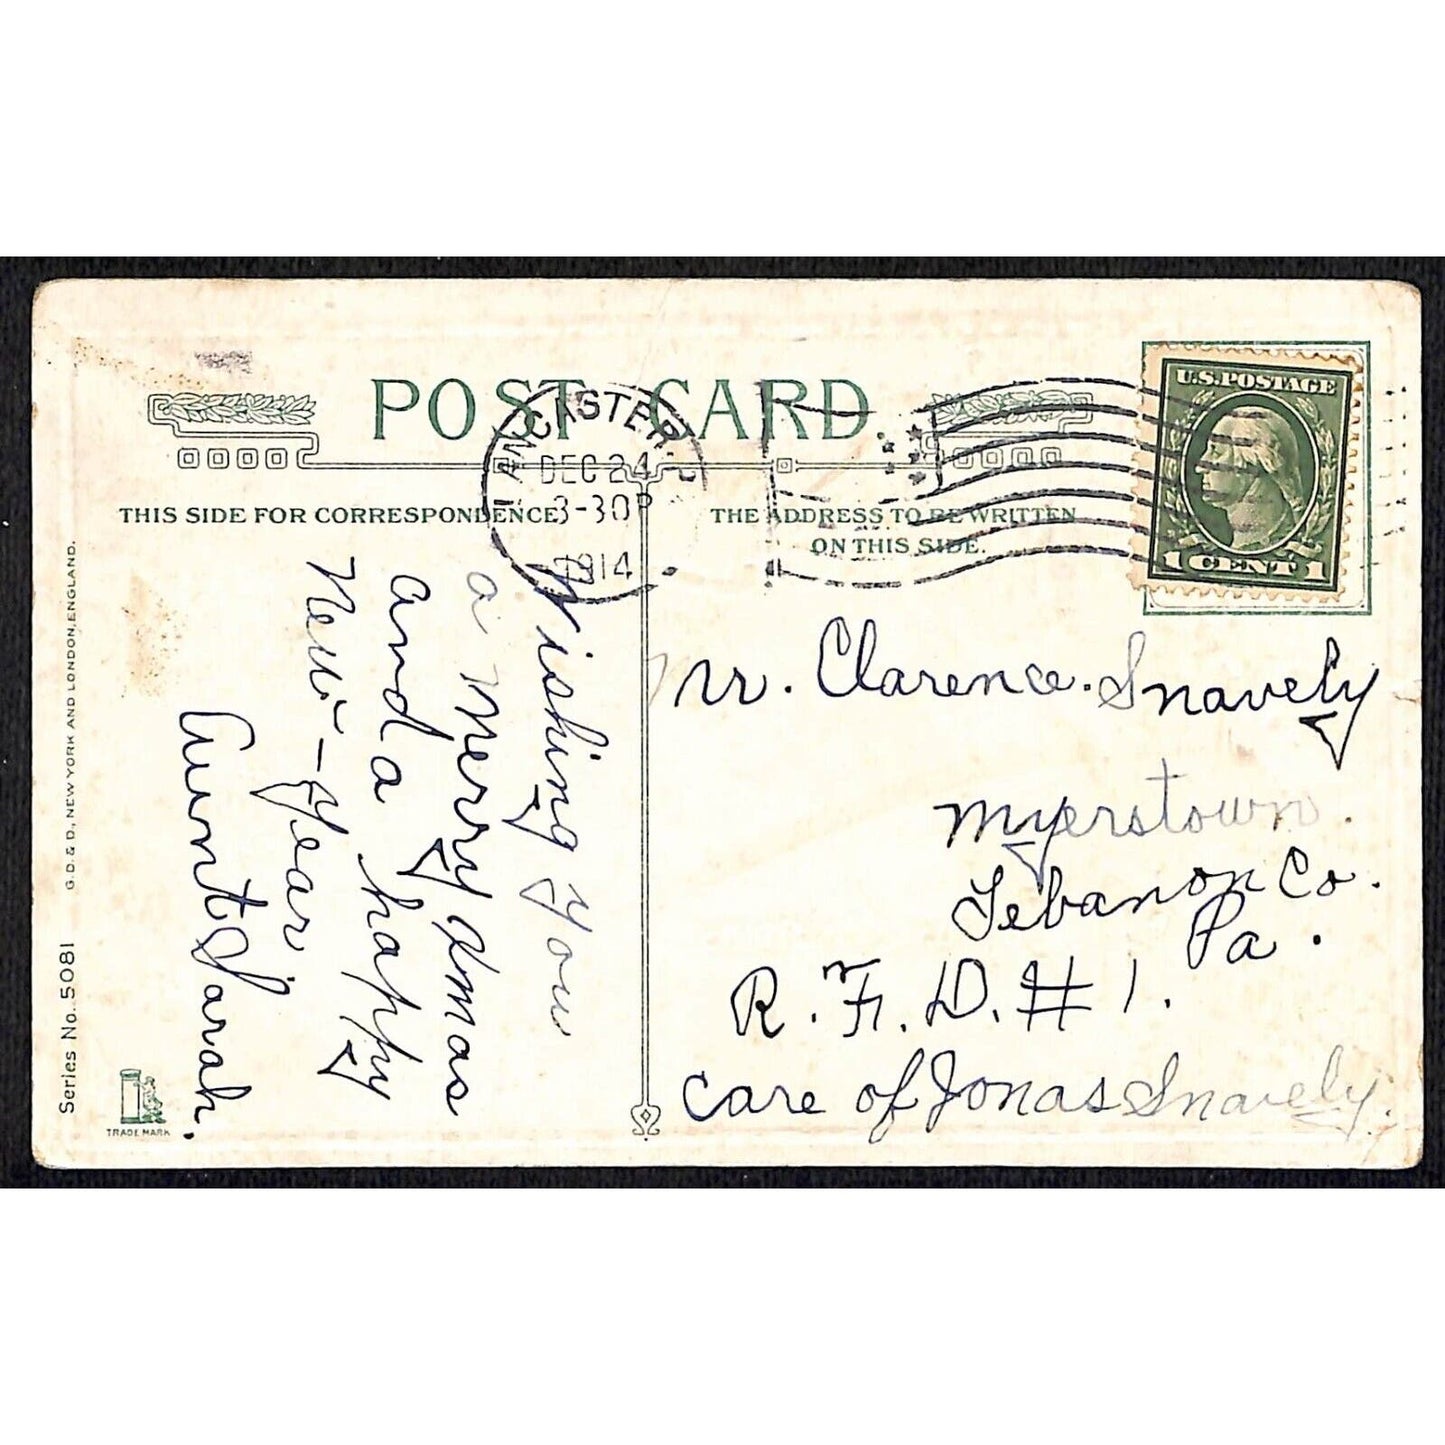 POST CARD
LANCASTER, P
DEC 24
3-30P
1914
U.S. POSTAGE
1 CENT 1
THIS SIDE FOR CORRESPONDENCE
THE ADDRESS TO BE WRITTEN
ON THIS SIDE.
Wishing you
a Merry Xmas
and a happy
New-Year
Aunt Sarah.
Mr. Clarence. Snavely
Myerstown.
Lebanon Co.
Pa.
R. F. D. # 1.
care of Jonas Snavely.
G. D. & D., NEW YORK AND LONDON, ENGLAND.
Series No. 5081
TRADE MARK